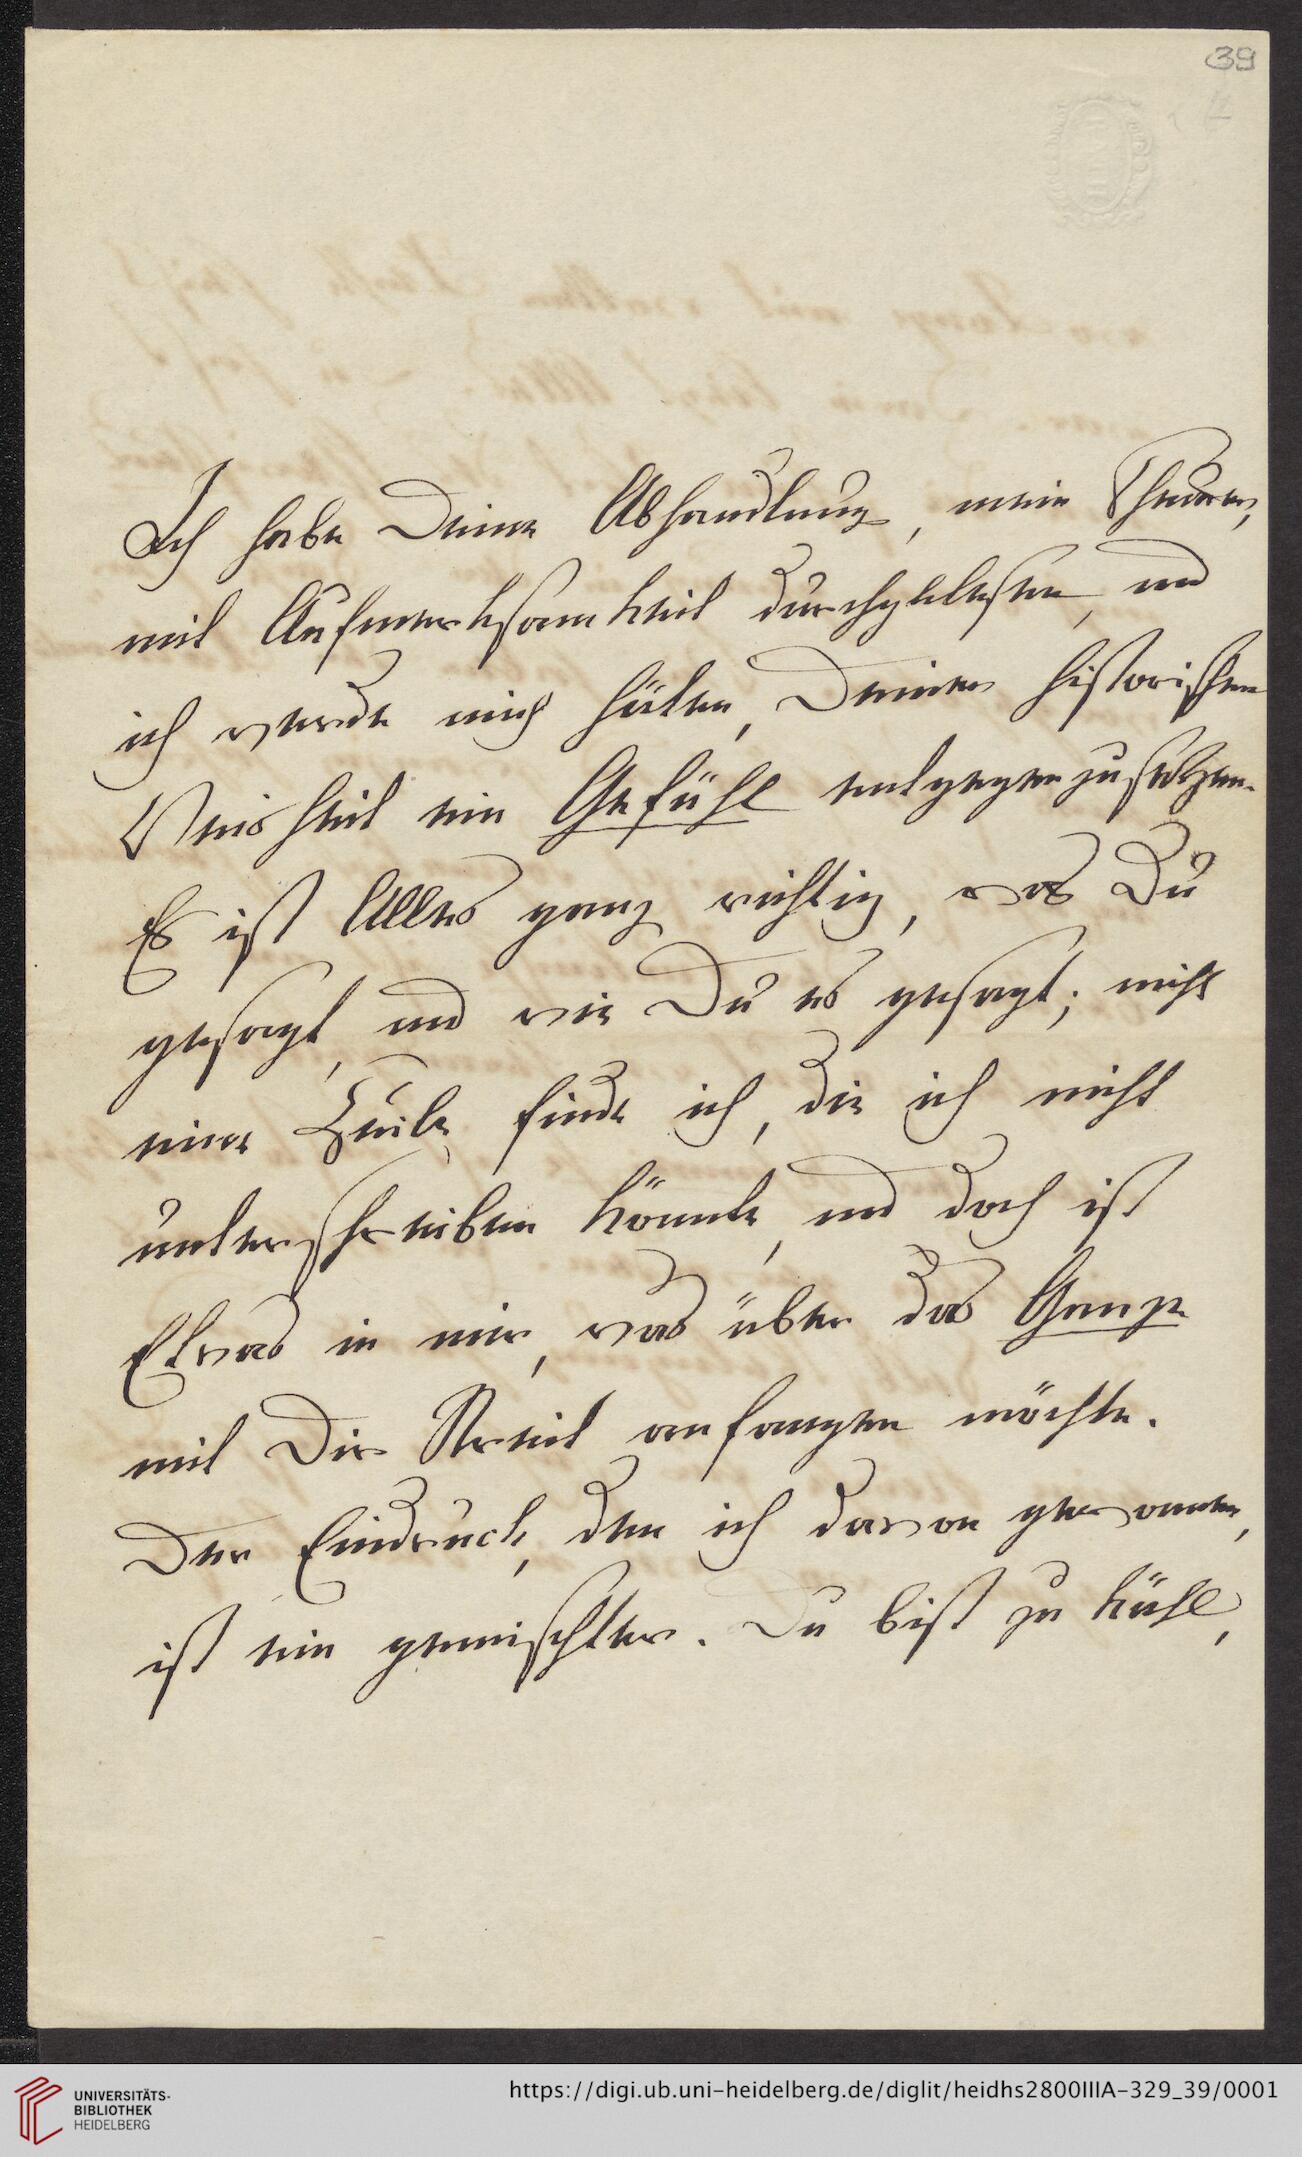 39
Ich habe Deine Abhandlung, mein Theurer,
mit Aufmerksamkeit durchgelesen, und
ich werde mich hüten, Deiner historischen
Weisheit ein Gefühl entgegenzusetzen.
Es ist Alles ganz richtig, was Du
gesagt, und wie Du es gesagt; nicht
eine Zeile finde ich, die ich nicht
unterschreiben könnte, und doch ist
Etwas in mir, was über das Ganze
mit Dir Streit anfangen möchte.
Der Eindruck, den ich davon gewonnen,
ist ein gemischter. Du bist zu kühl,
UNIVERSITÄTS-
BIBLIOTHEK
HEIDELBERG
https://digi.ub.uni-heidelberg.de/diglit/heidhs2800IIIA-329_39/0001